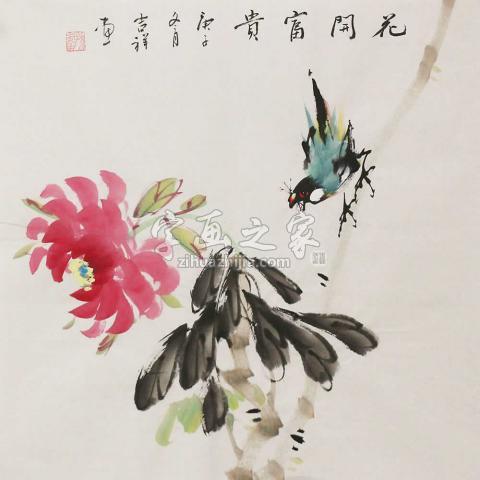 花開富貴
庚子
冬月
吉祥
畫
字画之家
zihuazhijia.com